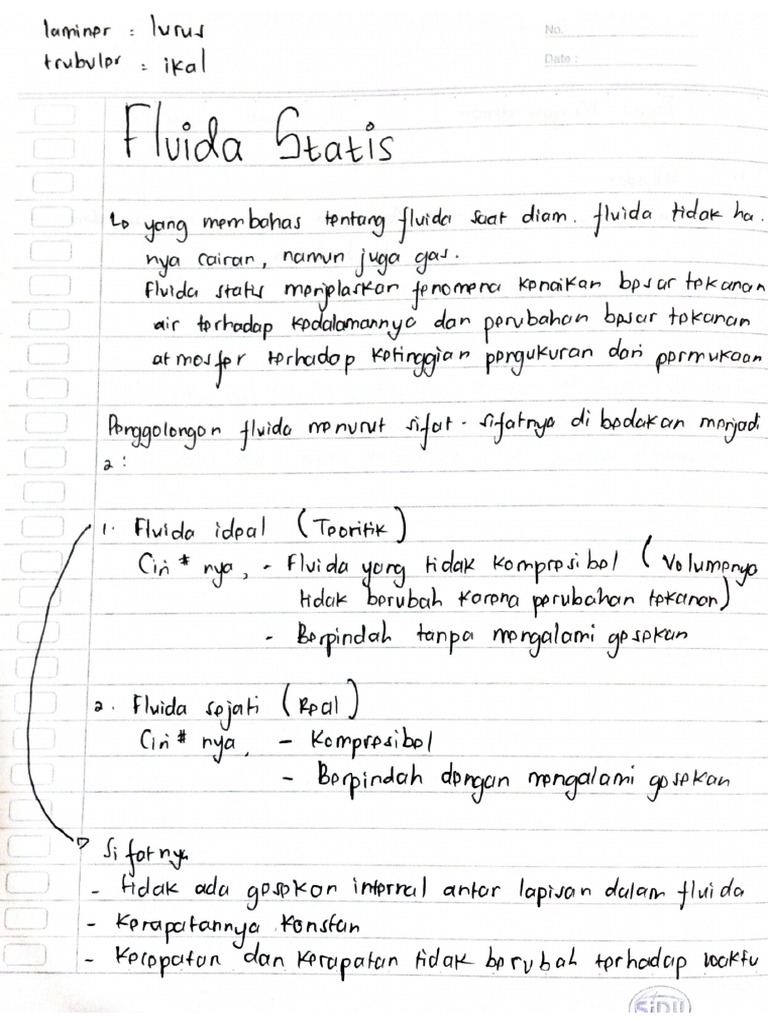 laminer : lurus
No.
trubuler : ikal
Date :
Fluida Statis
↳ yang membahas tentang fluida saat diam. fluida tidak ha.
nya cairan, namun juga gas.
Fluida statis menjelaskan fenomena kenaikan besar tekanan
air terhadap kedalamannya dan perubahan besar tekanan
atmosfer terhadap ketinggian pengukuran dari permukaan
Penggolongan fluida menurut sifat-sifatnya di bedakan menjadi
2 :
1. Fluida ideal (Teoritik)
Ciri # nya, - Fluida yang tidak kompresibel (Volumenya
tidak berubah karena perubahan tekanan)
- Berpindah tanpa mengalami gesekan
2. Fluida sejati (Real)
Ciri # nya, - Kompresibel
- Berpindah dengan mengalami gesekan
Sifatnya
- tidak ada gesekan internal antar lapisan dalam fluida
- Kerapatannya Konstan
- Kecepatan dan Kerapatan tidak berubah terhadap waktu
SiDU